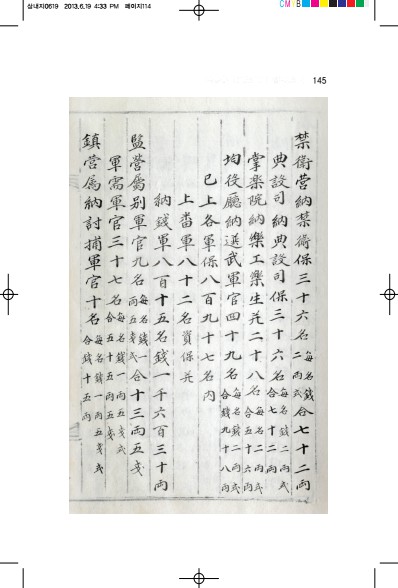 삼내지0619 2013.6.19 4:33 PM 페이지114
CM B
145
禁衛營納禁衛保三十六名 每名錢二兩式 合七十二兩
典設司納典設司保三十六名 每名錢二兩式 合七十二兩
掌樂院納樂工樂生并二十八名 每名二兩式 合五十六兩
均役廳納選武軍官四十九名 每名錢二兩式 合錢九十八兩
已上各軍保八百九十七名內
上番軍八十二名資保并
納錢軍八百十五名錢一千六百三十兩
監營屬別軍官九名 每名錢一兩五戔式 合十三兩五戔
軍需軍官三十七名 每名錢一兩五戔式 合五十五兩五戔
鎭營屬納討捕軍官十名 每名錢一兩五戔式 合錢十五兩